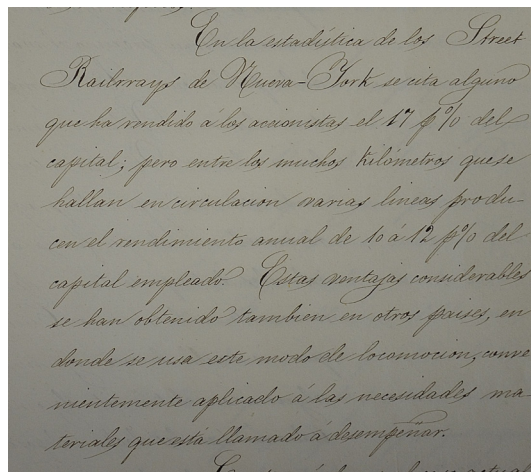 En la estadística de los Street
Railways de Nueva-York se cita alguno
que ha rendido á los accionistas el 17 p% del
capital; pero entre los muchos Kilómetros que se
hallan en circulacion varias lineas produ-
cen el rendimiento anual de 10 á 12 p% del
capital empleado. Estas ventajas considerables
se han obtenido tambien en otros paises, en
donde se usa este modo de locomocion, conve
nientemente aplicado á las necesidades ma-
teriales que está llamado á desempeñar.